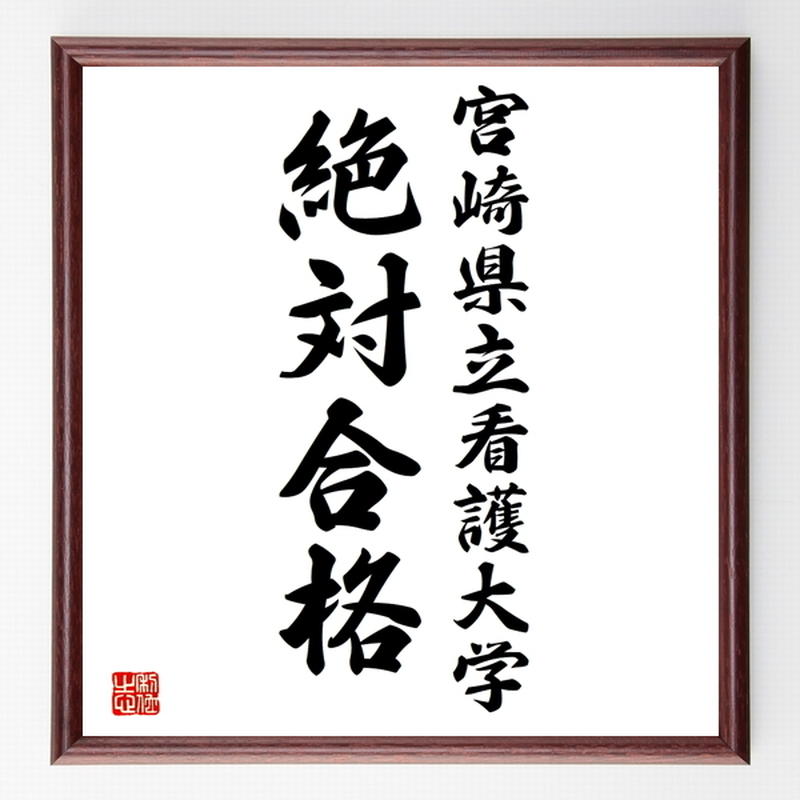 宮崎県立看護大学
絶対合格